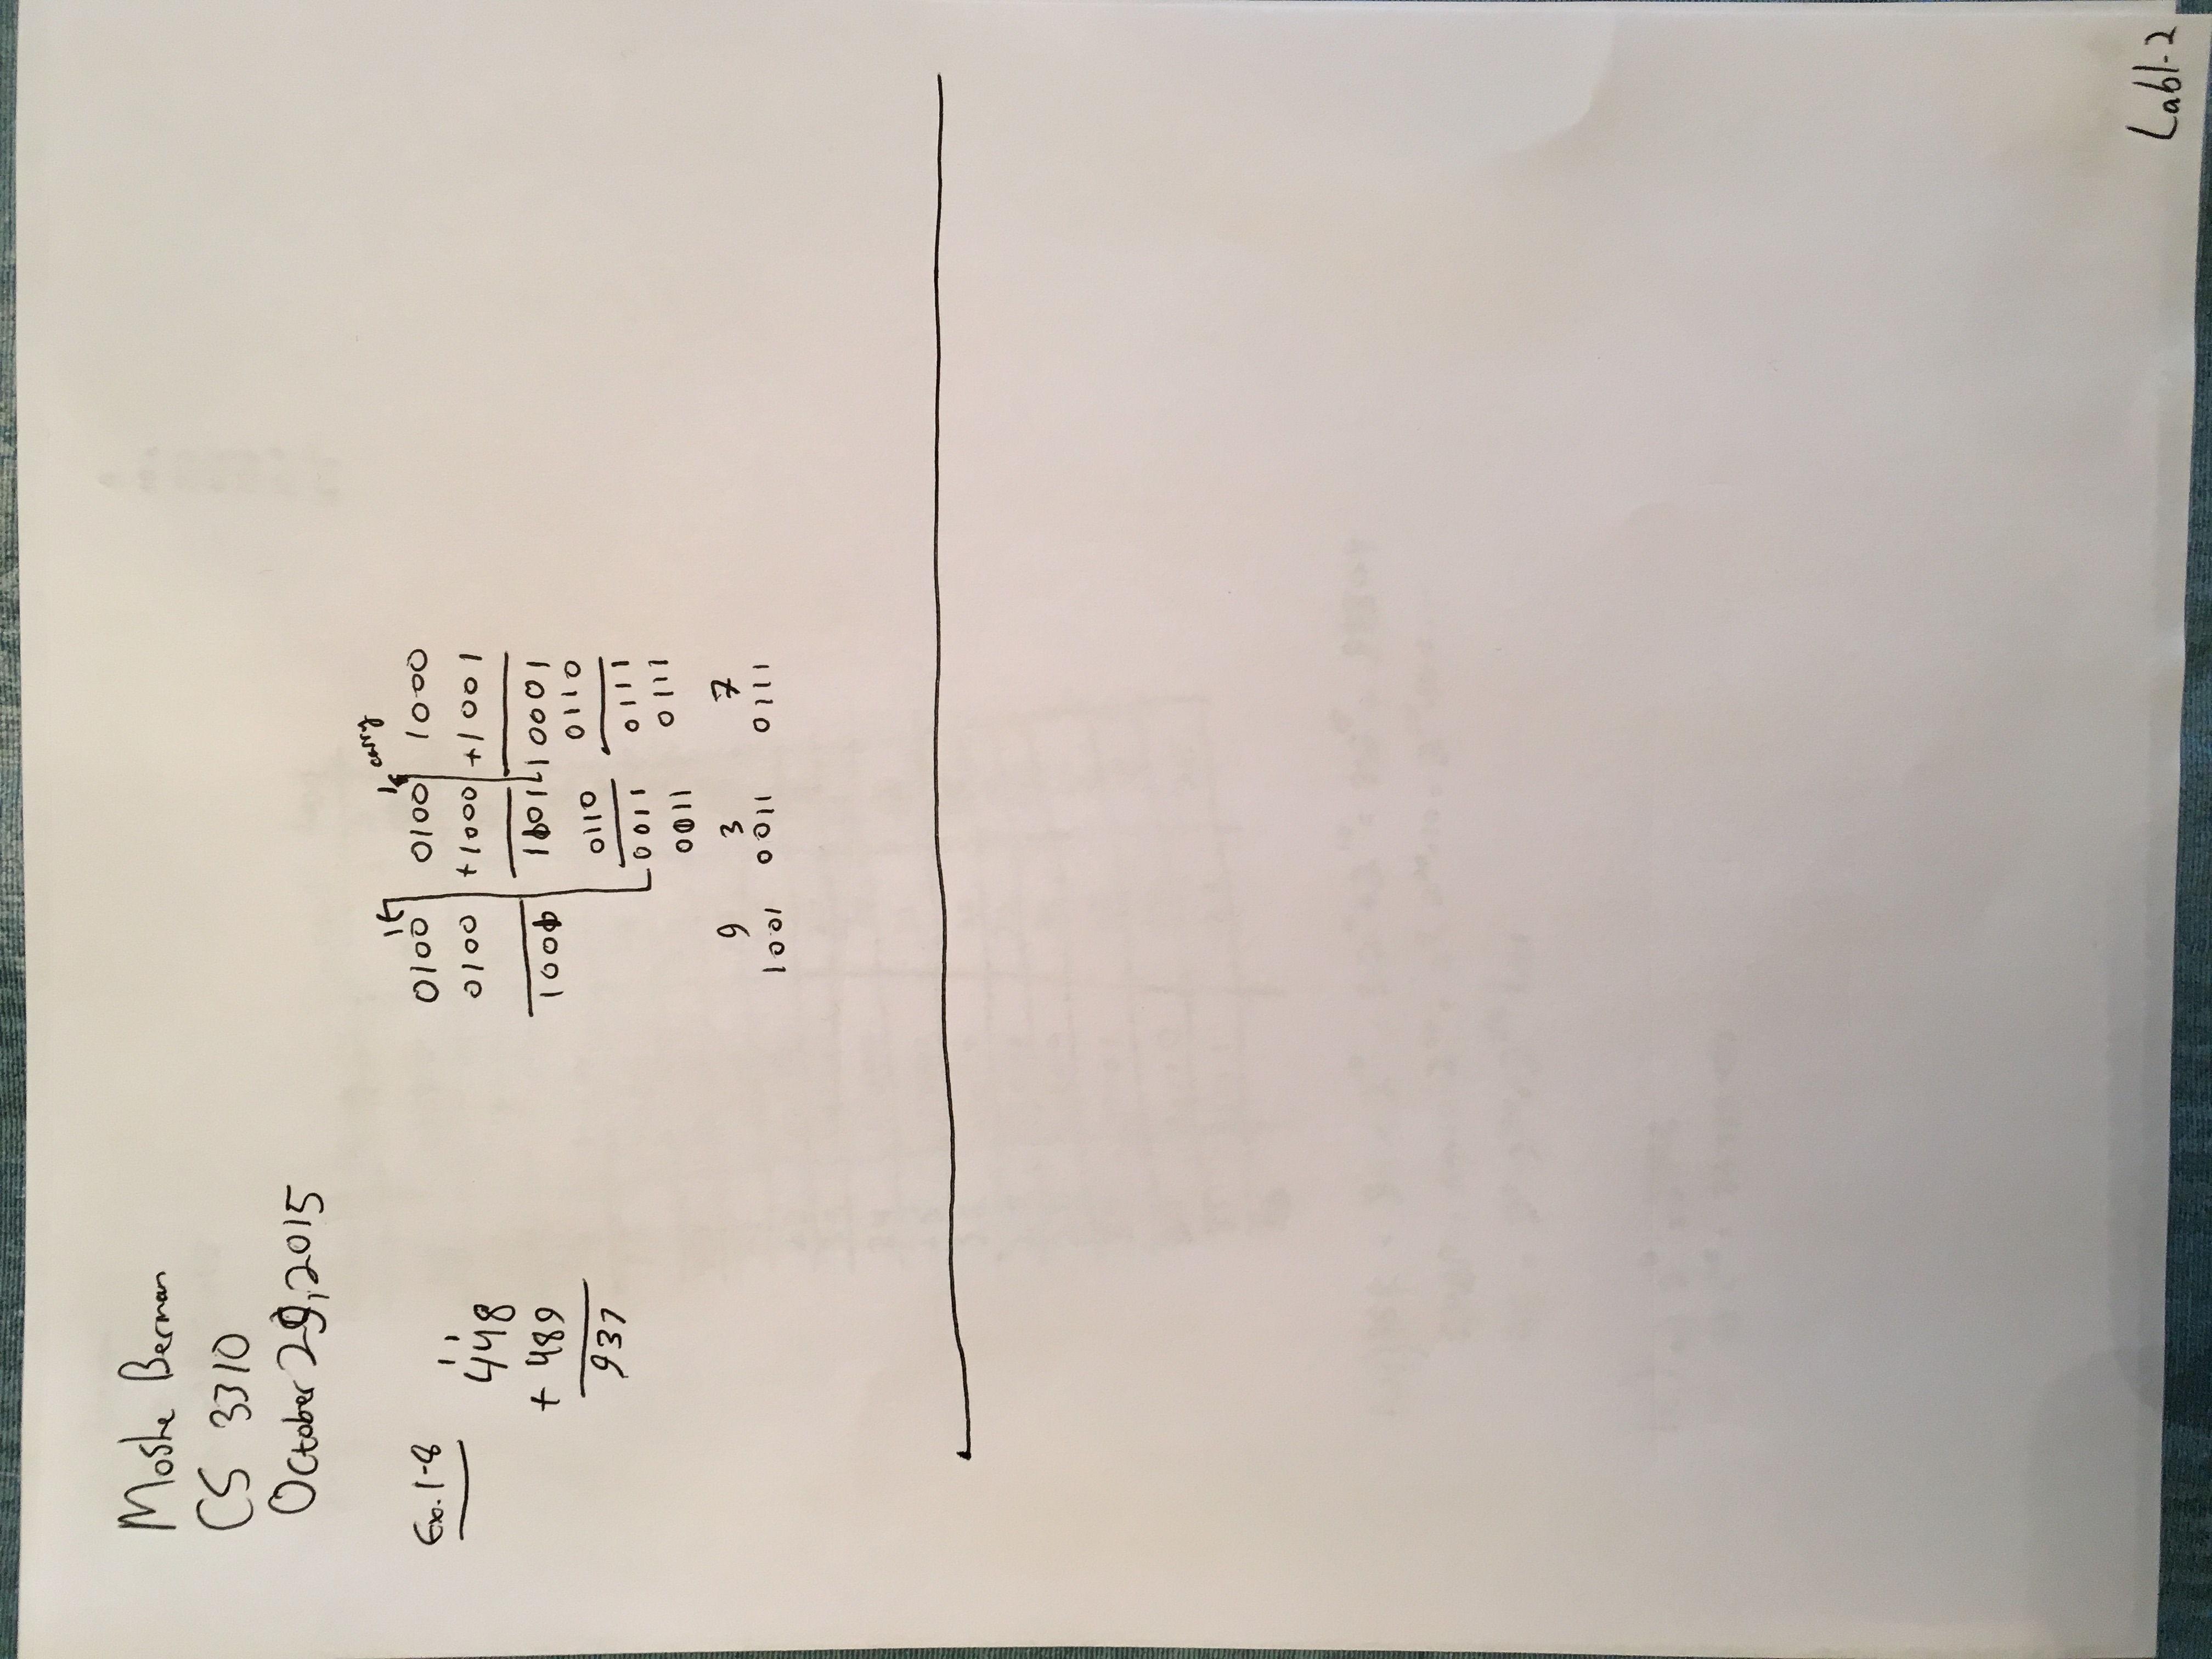 Moshe Berman
CS 3310
October 29, 2015
Ex. 1-8
1 1
448
+ 489
937
1 1 carry
0100 0100 1000
0100 +1000 +1001
1001 10001
0110 0110
0011 0111
0011 0111
9 3 7
1001 0011 0111
Lab1-2